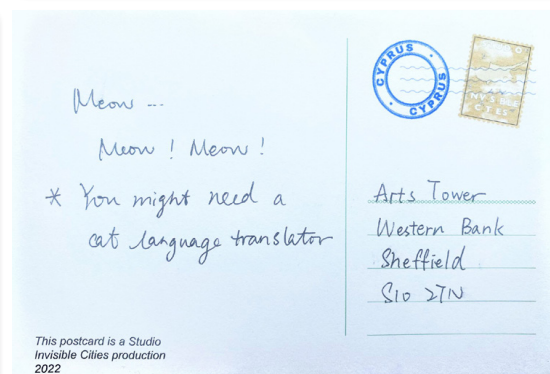 Meow ...
Meow ! Meow !
* You might need a
cat language translator
This postcard is a Studio
Invisible Cities production
2022
CYPRUS
CYPRUS
Arts Tower
Western Bank
Sheffield
S10 2TN